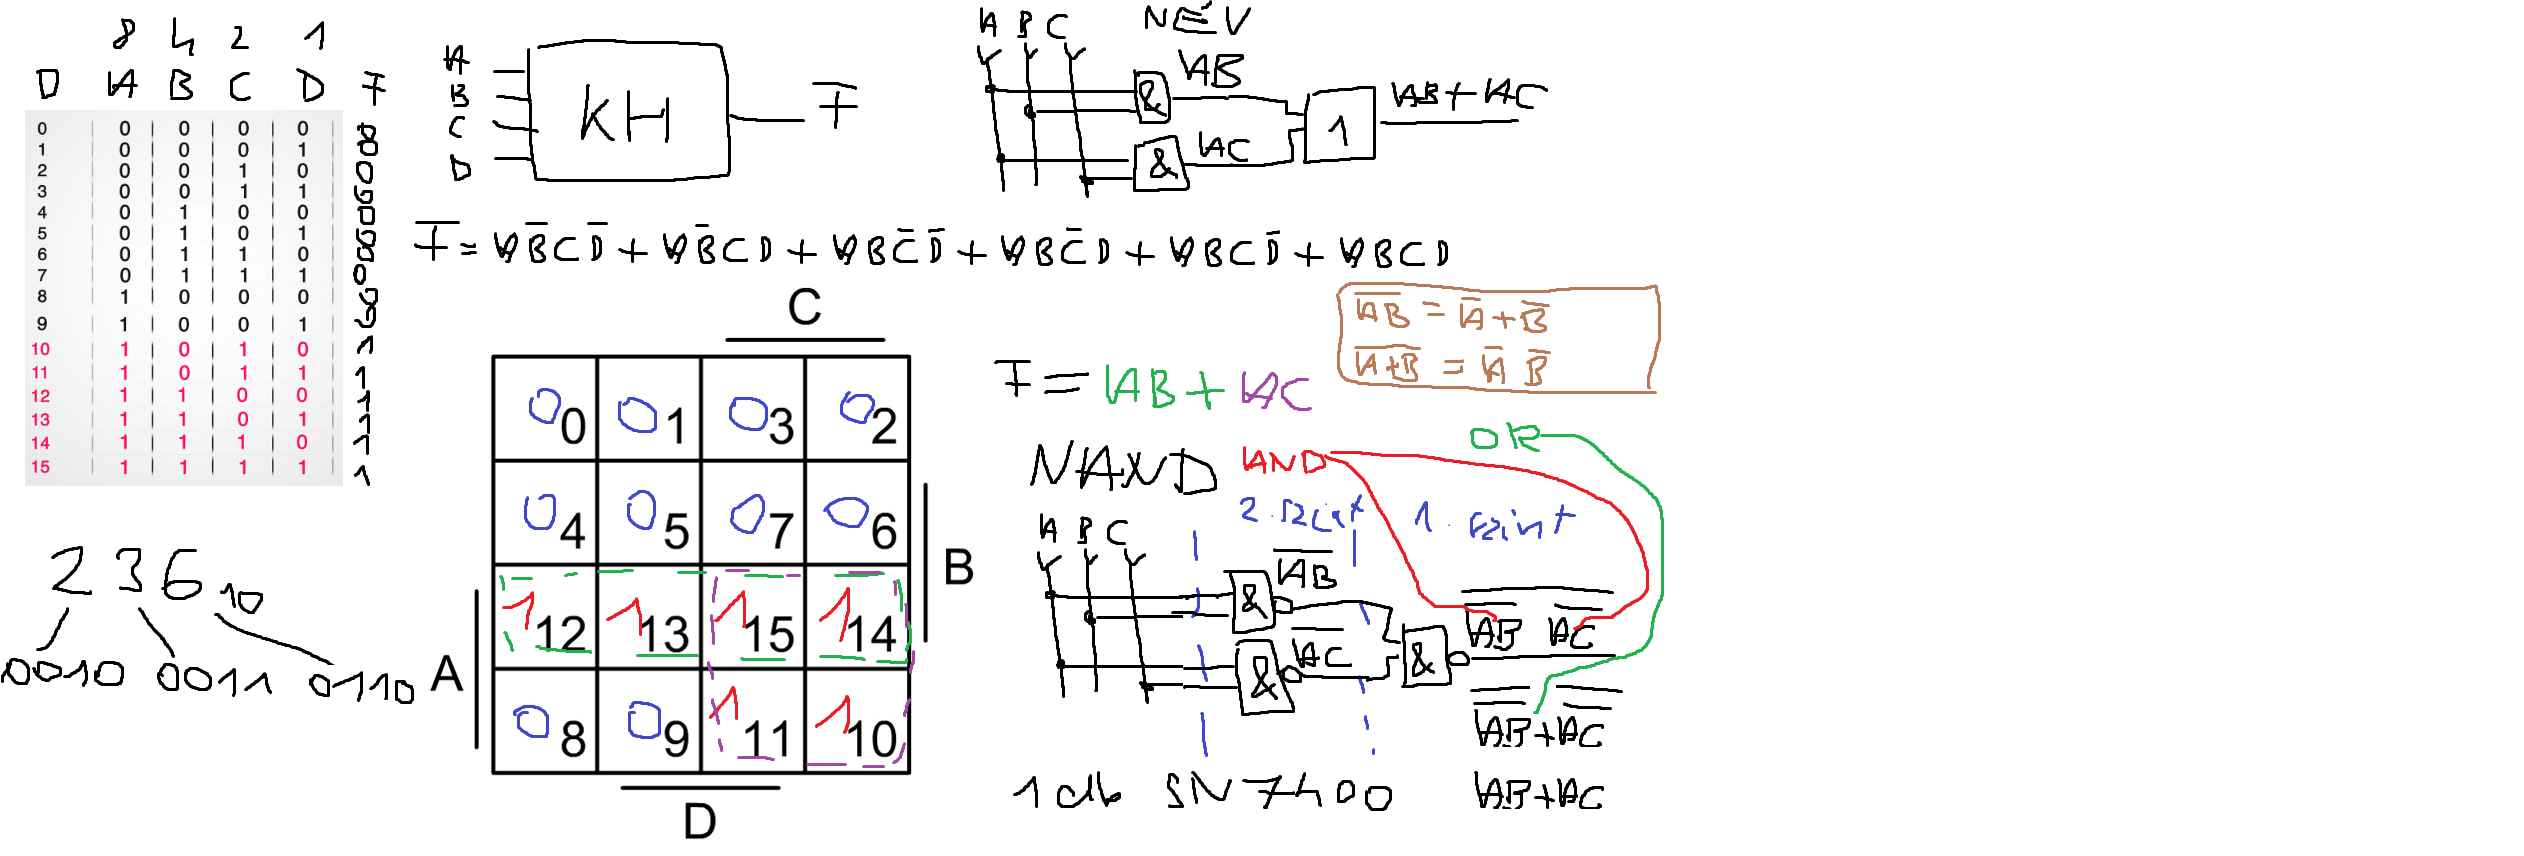 8 4 2 1
D A B C D F
0 0 0 0 0 0
1 0 0 0 1 0
2 0 0 1 0 0
3 0 0 1 1 0
4 0 1 0 0 0
5 0 1 0 1 0
6 0 1 1 0 0
7 0 1 1 1 0
8 1 0 0 0 0
9 1 0 0 1 0
10 1 0 1 0 1
11 1 0 1 1 1
12 1 1 0 0 1
13 1 1 0 1 1
14 1 1 1 0 1
15 1 1 1 1 1
236₁₀
0010 0011 0110
A
B
C
D
KH
F
F = AB̅CD̅ + AB̅CD + ABC̅D̅ + ABC̅D + ABCD̅ + ABCD
C
0 0 0 1 0 3 0 2
0 4 0 5 0 7 0 6
B
1 12 1 13 1 15 1 14
A
0 8 0 9 1 11 1 10
D
NÉV
A B C
& AB
& AC
1
AB+AC
A̅B̅ = A̅+B̅
A̅+̅B̅ = A̅ B̅
F = AB + AC
OR
NAND AND
2. szint 1. szint
A B C
& A̅B̅
& A̅C̅
&
A̅B̅ A̅C̅
A̅B̅+A̅C̅
AB+AC
1 db SN7400